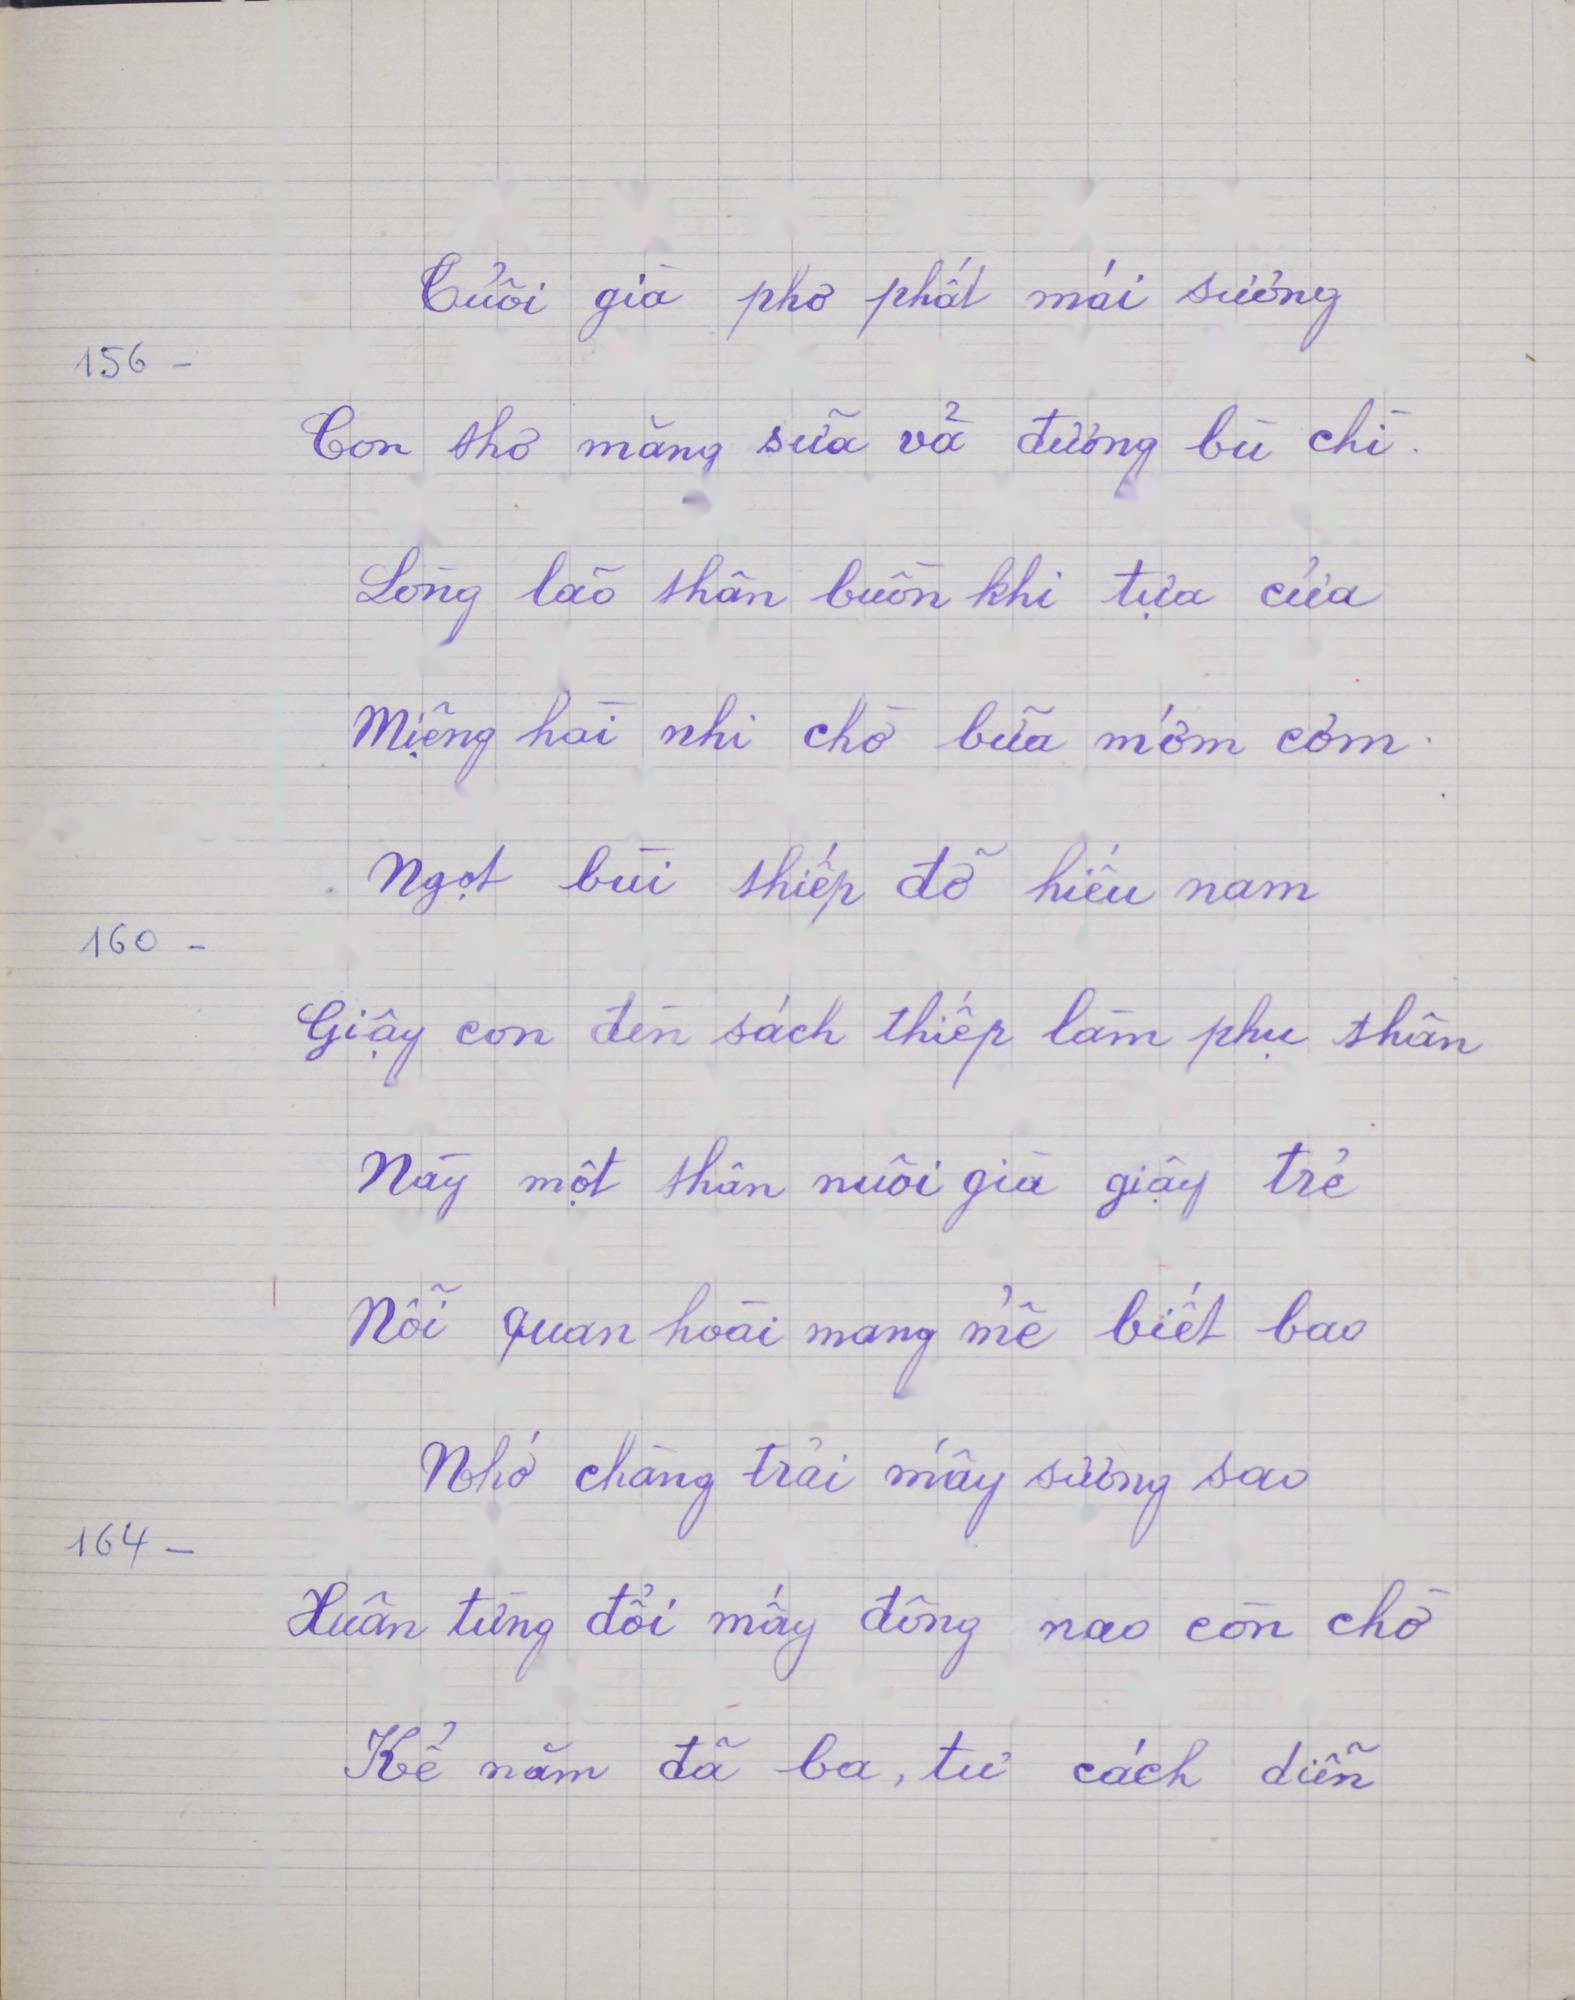 Tuổi già phơ phất mái sương
156 -
Con thơ măng sữa vả đương bù chì.
Lòng lão thân buồn khi tựa cửa
Miệng hài nhi chờ bữa mớm cơm.
Ngọt bùi thiếp đỡ hiếu nam
160 -
Giậy con đèn sách thiếp làm phụ thân
Nay một thân nuôi già giậy trẻ
Nỗi quan hoài mang mể biết bao
Nhớ chàng trải mấy sương sao
164 -
Xuân từng đổi mấy đông nao còn chờ
Kể năm đã ba, tư cách diễn